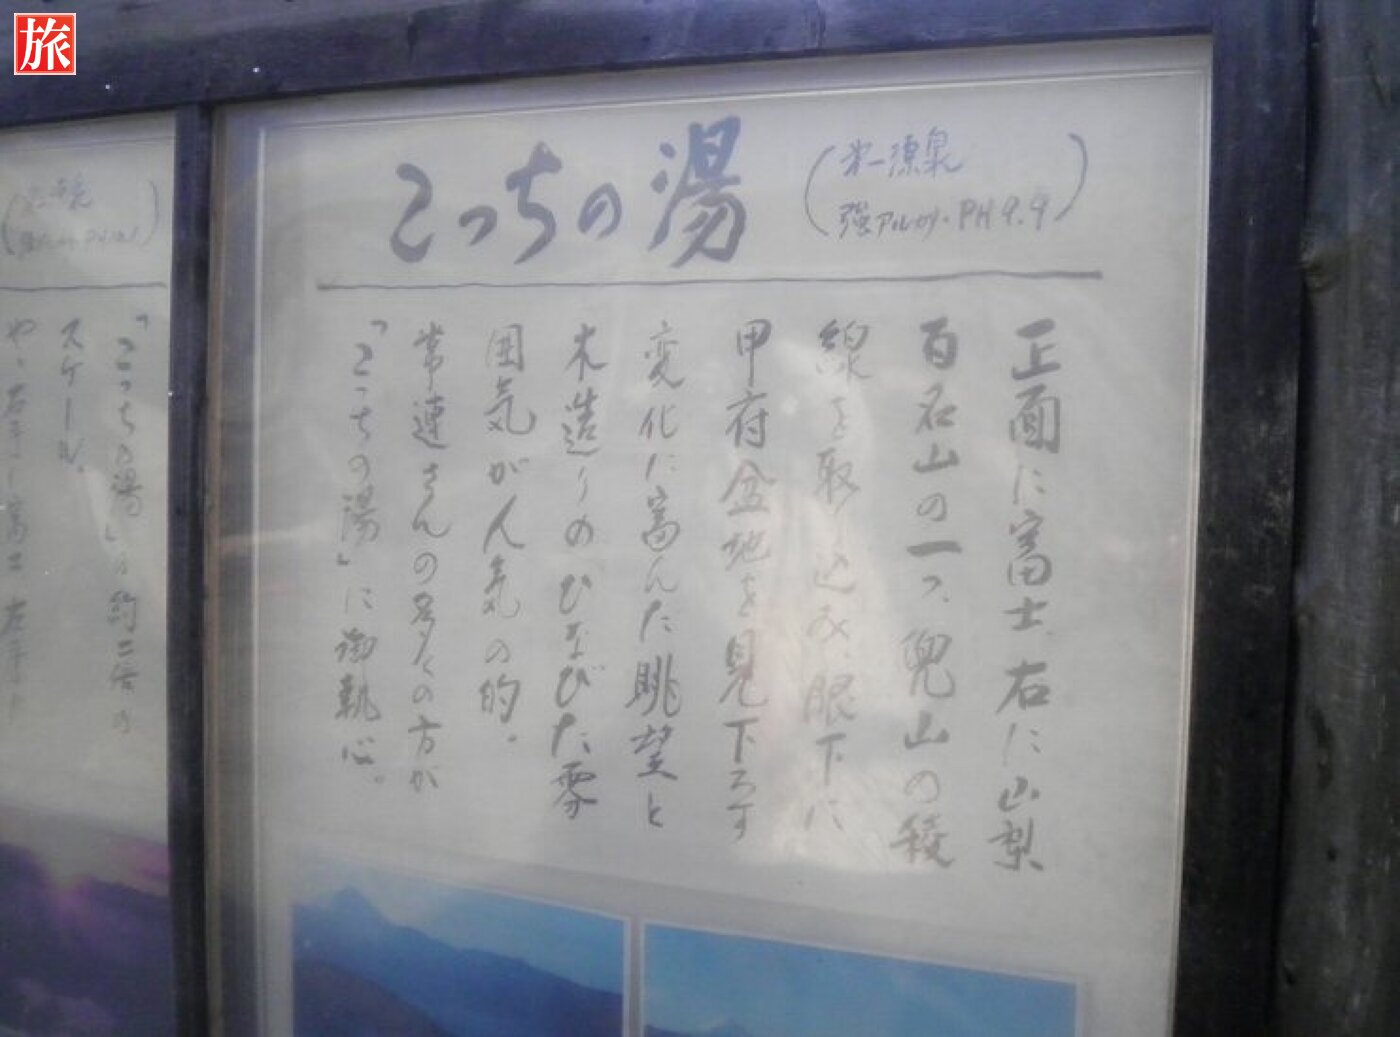 旅
こっちの湯
(第一源泉
強アルカリ・PH9.9)
正面に富士、右に山梨
百名山の一つ、兜山の稜
線を取り込み、眼下に
甲府盆地を見下ろす
変化に富んだ眺望と
木造りのひなびた雰
囲気が人気の的。
常連さんの多くの方が
「こっちの湯」に御執心。
「こっちの湯」の約二倍の
スケール。